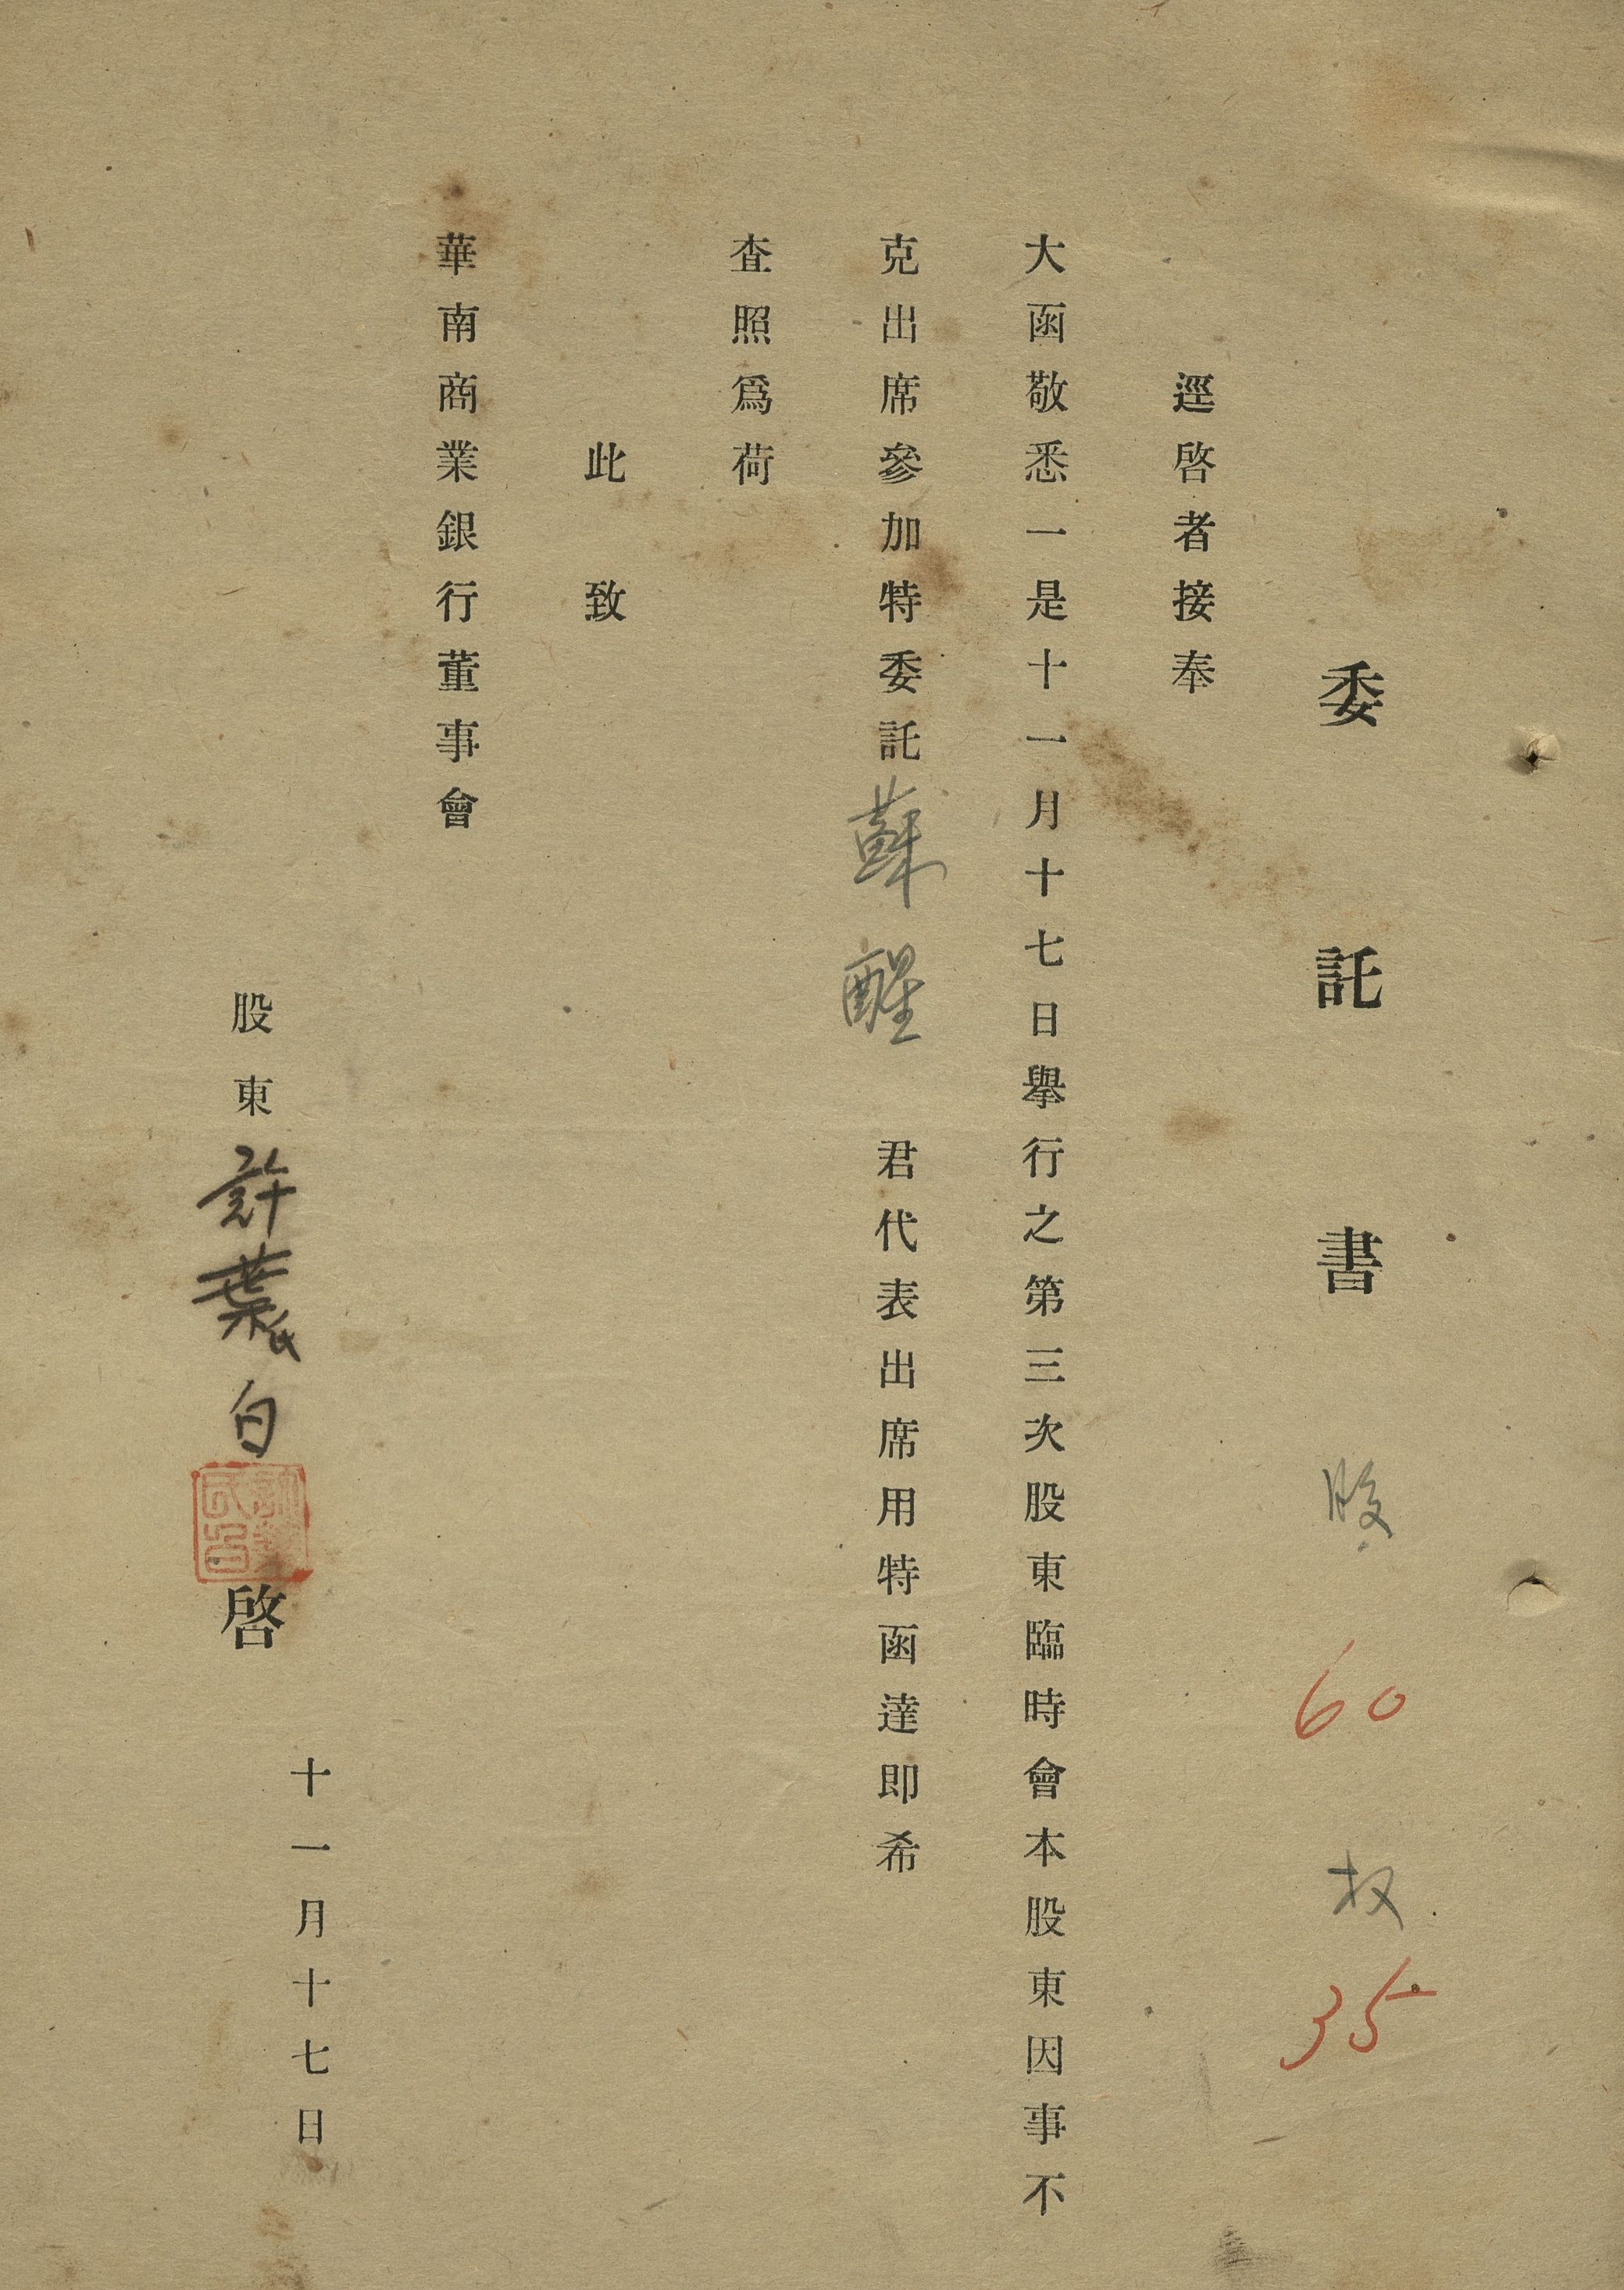 委託書 股 60 权 35
逕啓者接奉
大函敬悉一是十一月十七日舉行之第三次股東臨時會本股東因事不
克出席參加特委託蘇醒君代表出席用特函達即希
查照爲荷
此致
華南商業銀行董事會
股東許葉氏白啓
十一月十七日